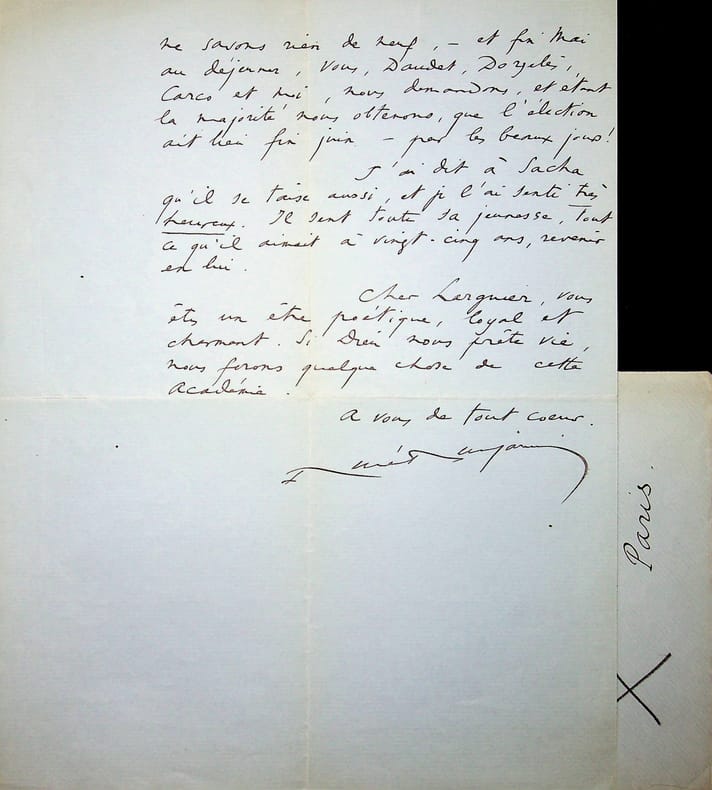 ne savons rien de neuf, – et fin Mai
au déjeuner, vous, Daudet, Dorgelès,
Carco et moi, nous demandons, et étant
la majorité nous obtenons, que l'élection
ait lieu fin juin – par les beaux jours!
J'ai dit à Sacha
qu'il se taise aussi, et je l'ai senti très
heureux. Il sent toute sa jeunesse, tout
ce qu'il aimait à vingt-cinq ans, revenir
en lui.
Cher Larguier, vous
êtes un être poétique, loyal et
charmant. Si Dieu nous prête vie,
nous ferons quelque chose de cette
Académie.
A vous de tout coeur.
Paris.
X